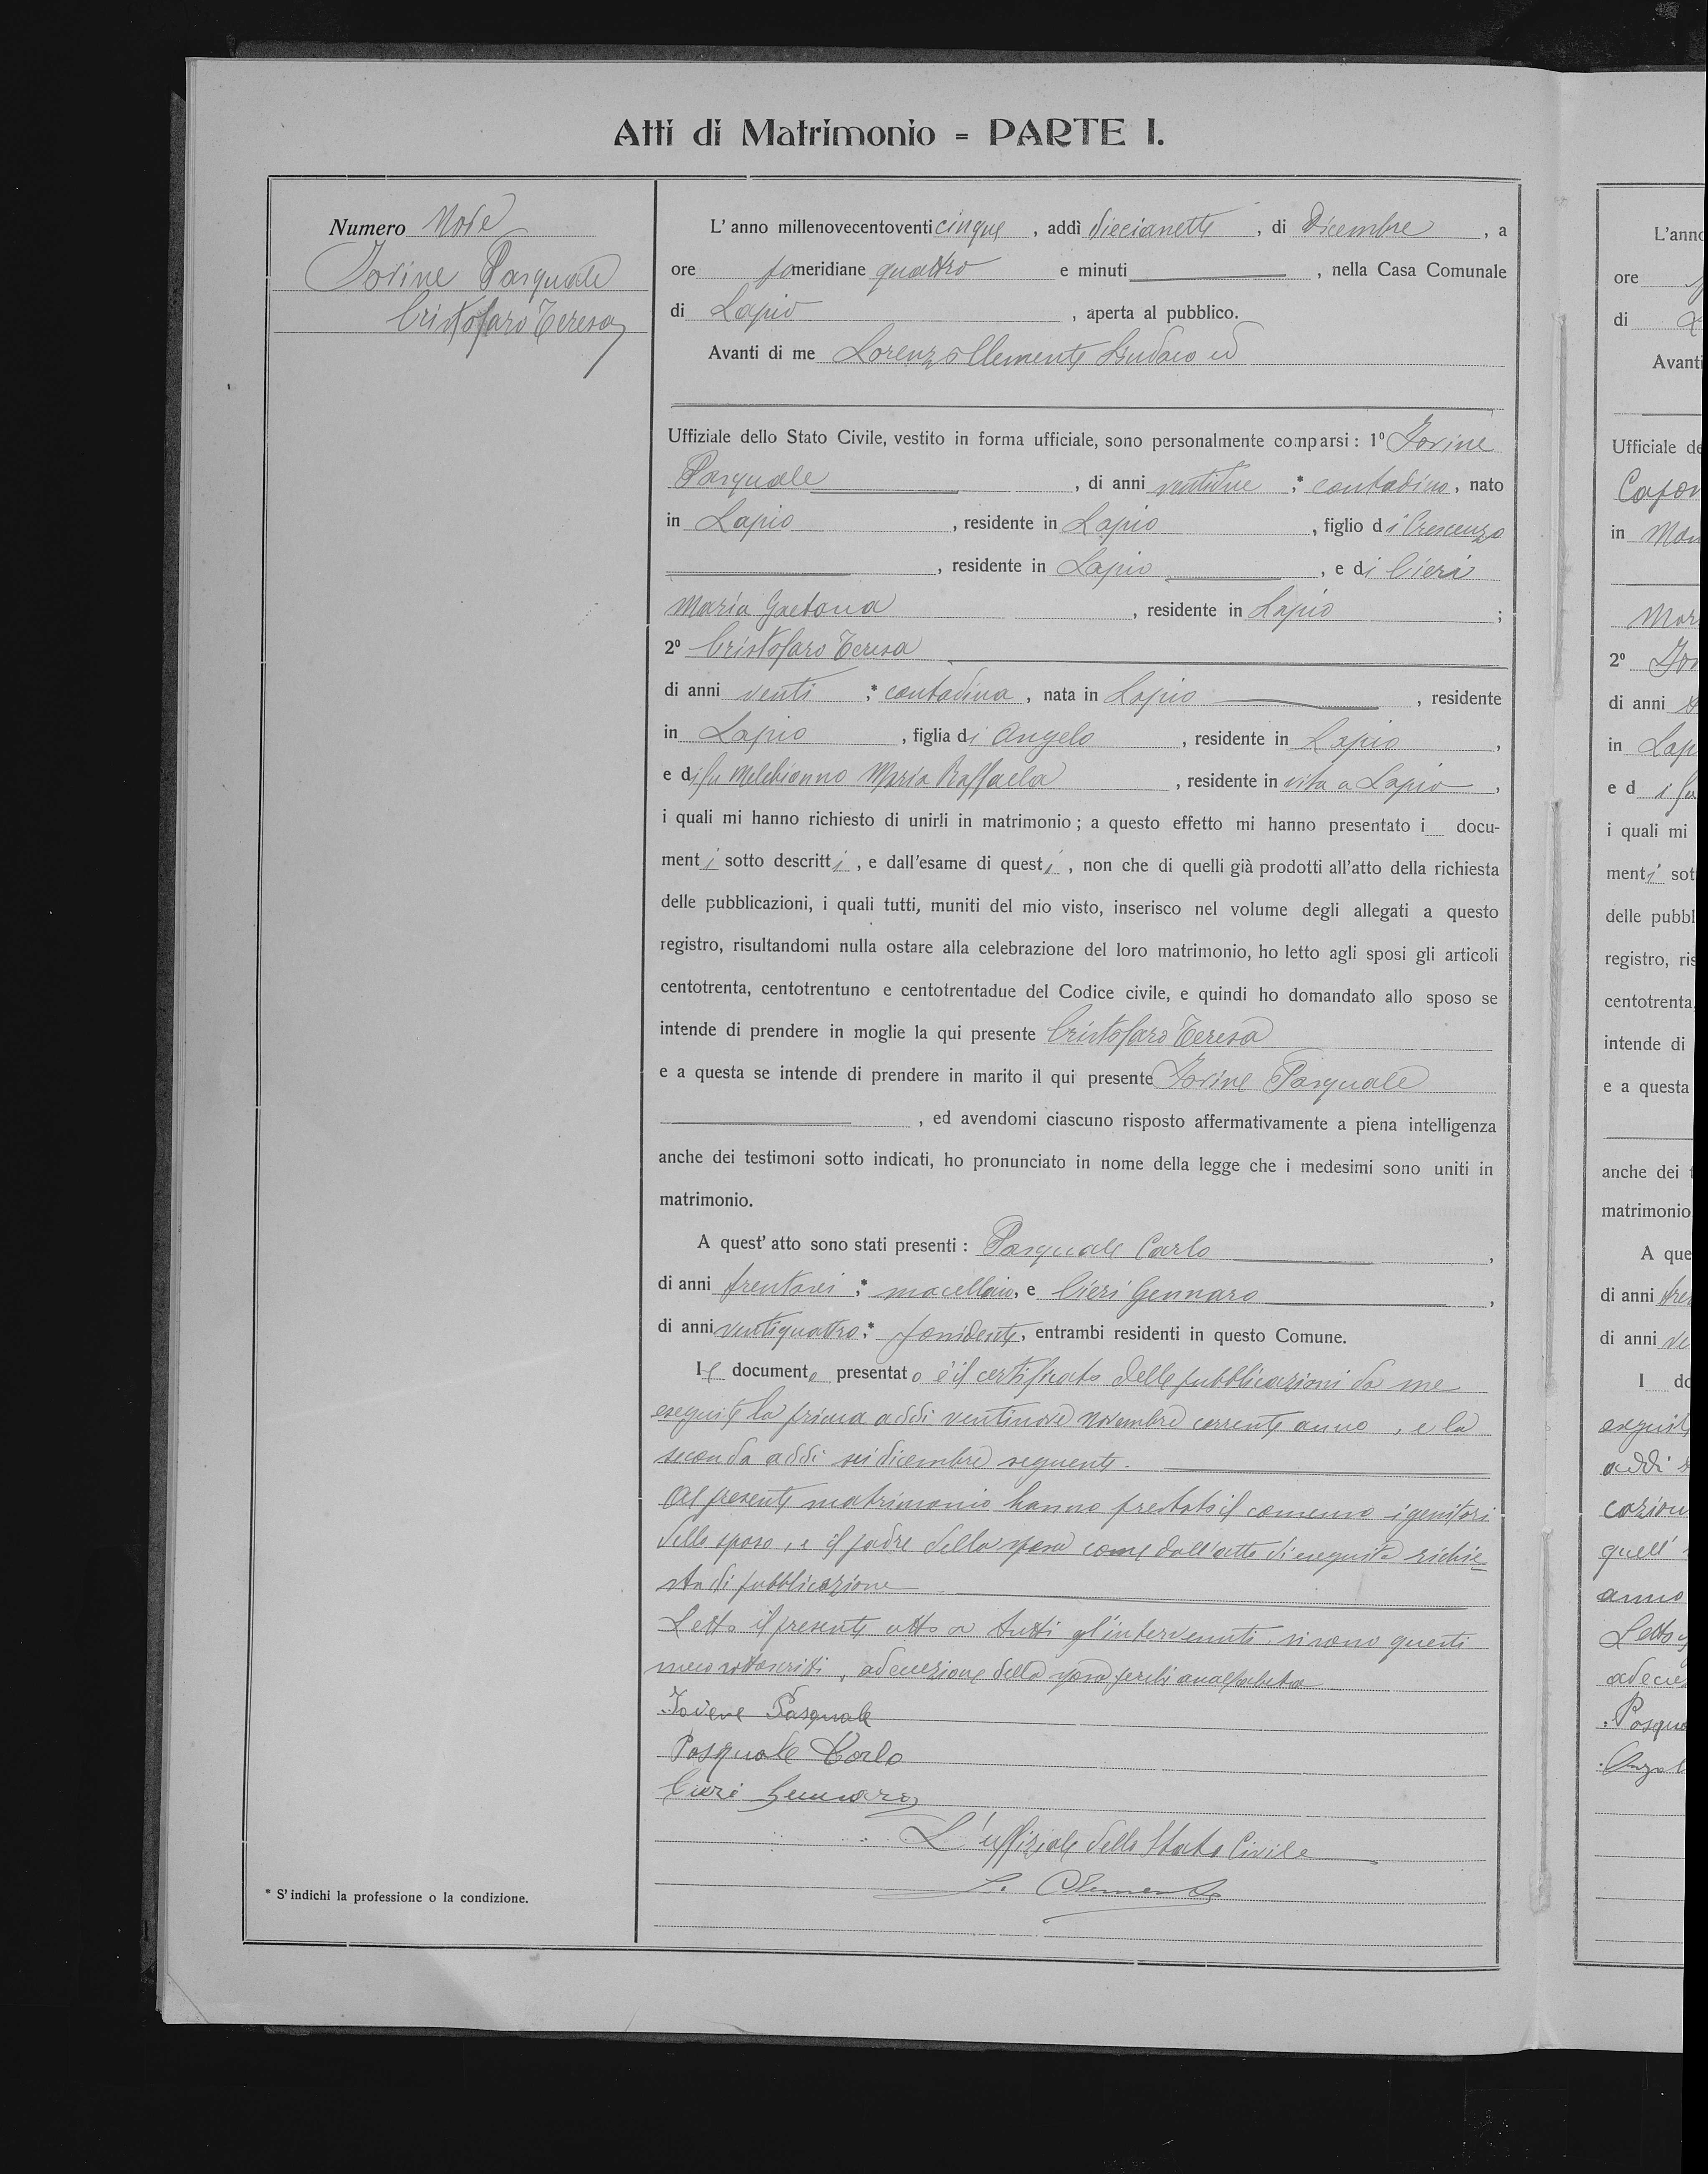 Atti di Matrimonio = PARTE I.
Numero Nove
Iovine Pasquale
Cristofaro Teresa
L'anno millenovecentoventicinque, addì diecianette, di Dicembre, a
ore pomeridiane quattro e minuti , nella Casa Comunale
di Lapio, aperta al pubblico.
Avanti di me Lorenzo Clemente Sindaco ed
Uffiziale dello Stato Civile, vestito in forma ufficiale, sono personalmente comparsi: 1º Iovine
Pasquale, di anni ventidue ;* contadino, nato
in Lapio, residente in Lapio, figlio di Crescenzo
, residente in Lapio, e di Cieri
Maria Gaetana, residente in Lapio;
2º Cristofaro Teresa
di anni venti ;* contadina, nata in Lapio, residente
in Lapio, figlia di Angelo, residente in Lapio,
e di fu Melchionno Maria Raffaela, residente in vita a Lapio,
i quali mi hanno richiesto di unirli in matrimonio; a questo effetto mi hanno presentato i docu-
menti sotto descritti, e dall'esame di questi, non che di quelli già prodotti all'atto della richiesta
delle pubblicazioni, i quali tutti, muniti del mio visto, inserisco nel volume degli allegati a questo
registro, risultandomi nulla ostare alla celebrazione del loro matrimonio, ho letto agli sposi gli articoli
centotrenta, centotrentuno e centotrentadue del Codice civile, e quindi ho domandato allo sposo se
intende di prendere in moglie la qui presente Cristofaro Teresa
e a questa se intende di prendere in marito il qui presente Iovine Pasquale
, ed avendomi ciascuno risposto affermativamente a piena intelligenza
anche dei testimoni sotto indicati, ho pronunciato in nome della legge che i medesimi sono uniti in
matrimonio.
A quest'atto sono stati presenti: Pasquale Carlo,
di anni trentasei ;* macellaio, e Cieri Gennaro,
di anni ventiquattro ;* possidente, entrambi residenti in questo Comune.
Il documento presentato è il certificato delle pubblicazioni da me
eseguite la prima addì ventinove novembre corrente anno, e la
seconda addì sei dicembre seguente.
Al presente matrimonio hanno prestato il consenso i genitori
dello sposo, e il padre della sposa come dall'atto di eseguita richie=
sta di pubblicazione
Letto il presente atto a tutti gl'intervenuti si sono questi
meco sottoscritti, ad eccezione della sposa perchè analfabeta
Iovene Pasquale
Pasquale Carlo
Cieri Gennaro
L'uffiziale dello Stato Civile
L. Clemente
* S'indichi la professione o la condizione.
L'anno
ore
di
Avanti
Ufficiale de
Capon
in
2º
di anni
in Lap
e d i fu
i quali mi
menti sot
delle pubbl
registro, ris
centotrenta
intende di
e a questa
anche dei t
matrimonio
A que
di anni tre
di anni ve
I do
addi
quell'
anno
Letto
Pasqua